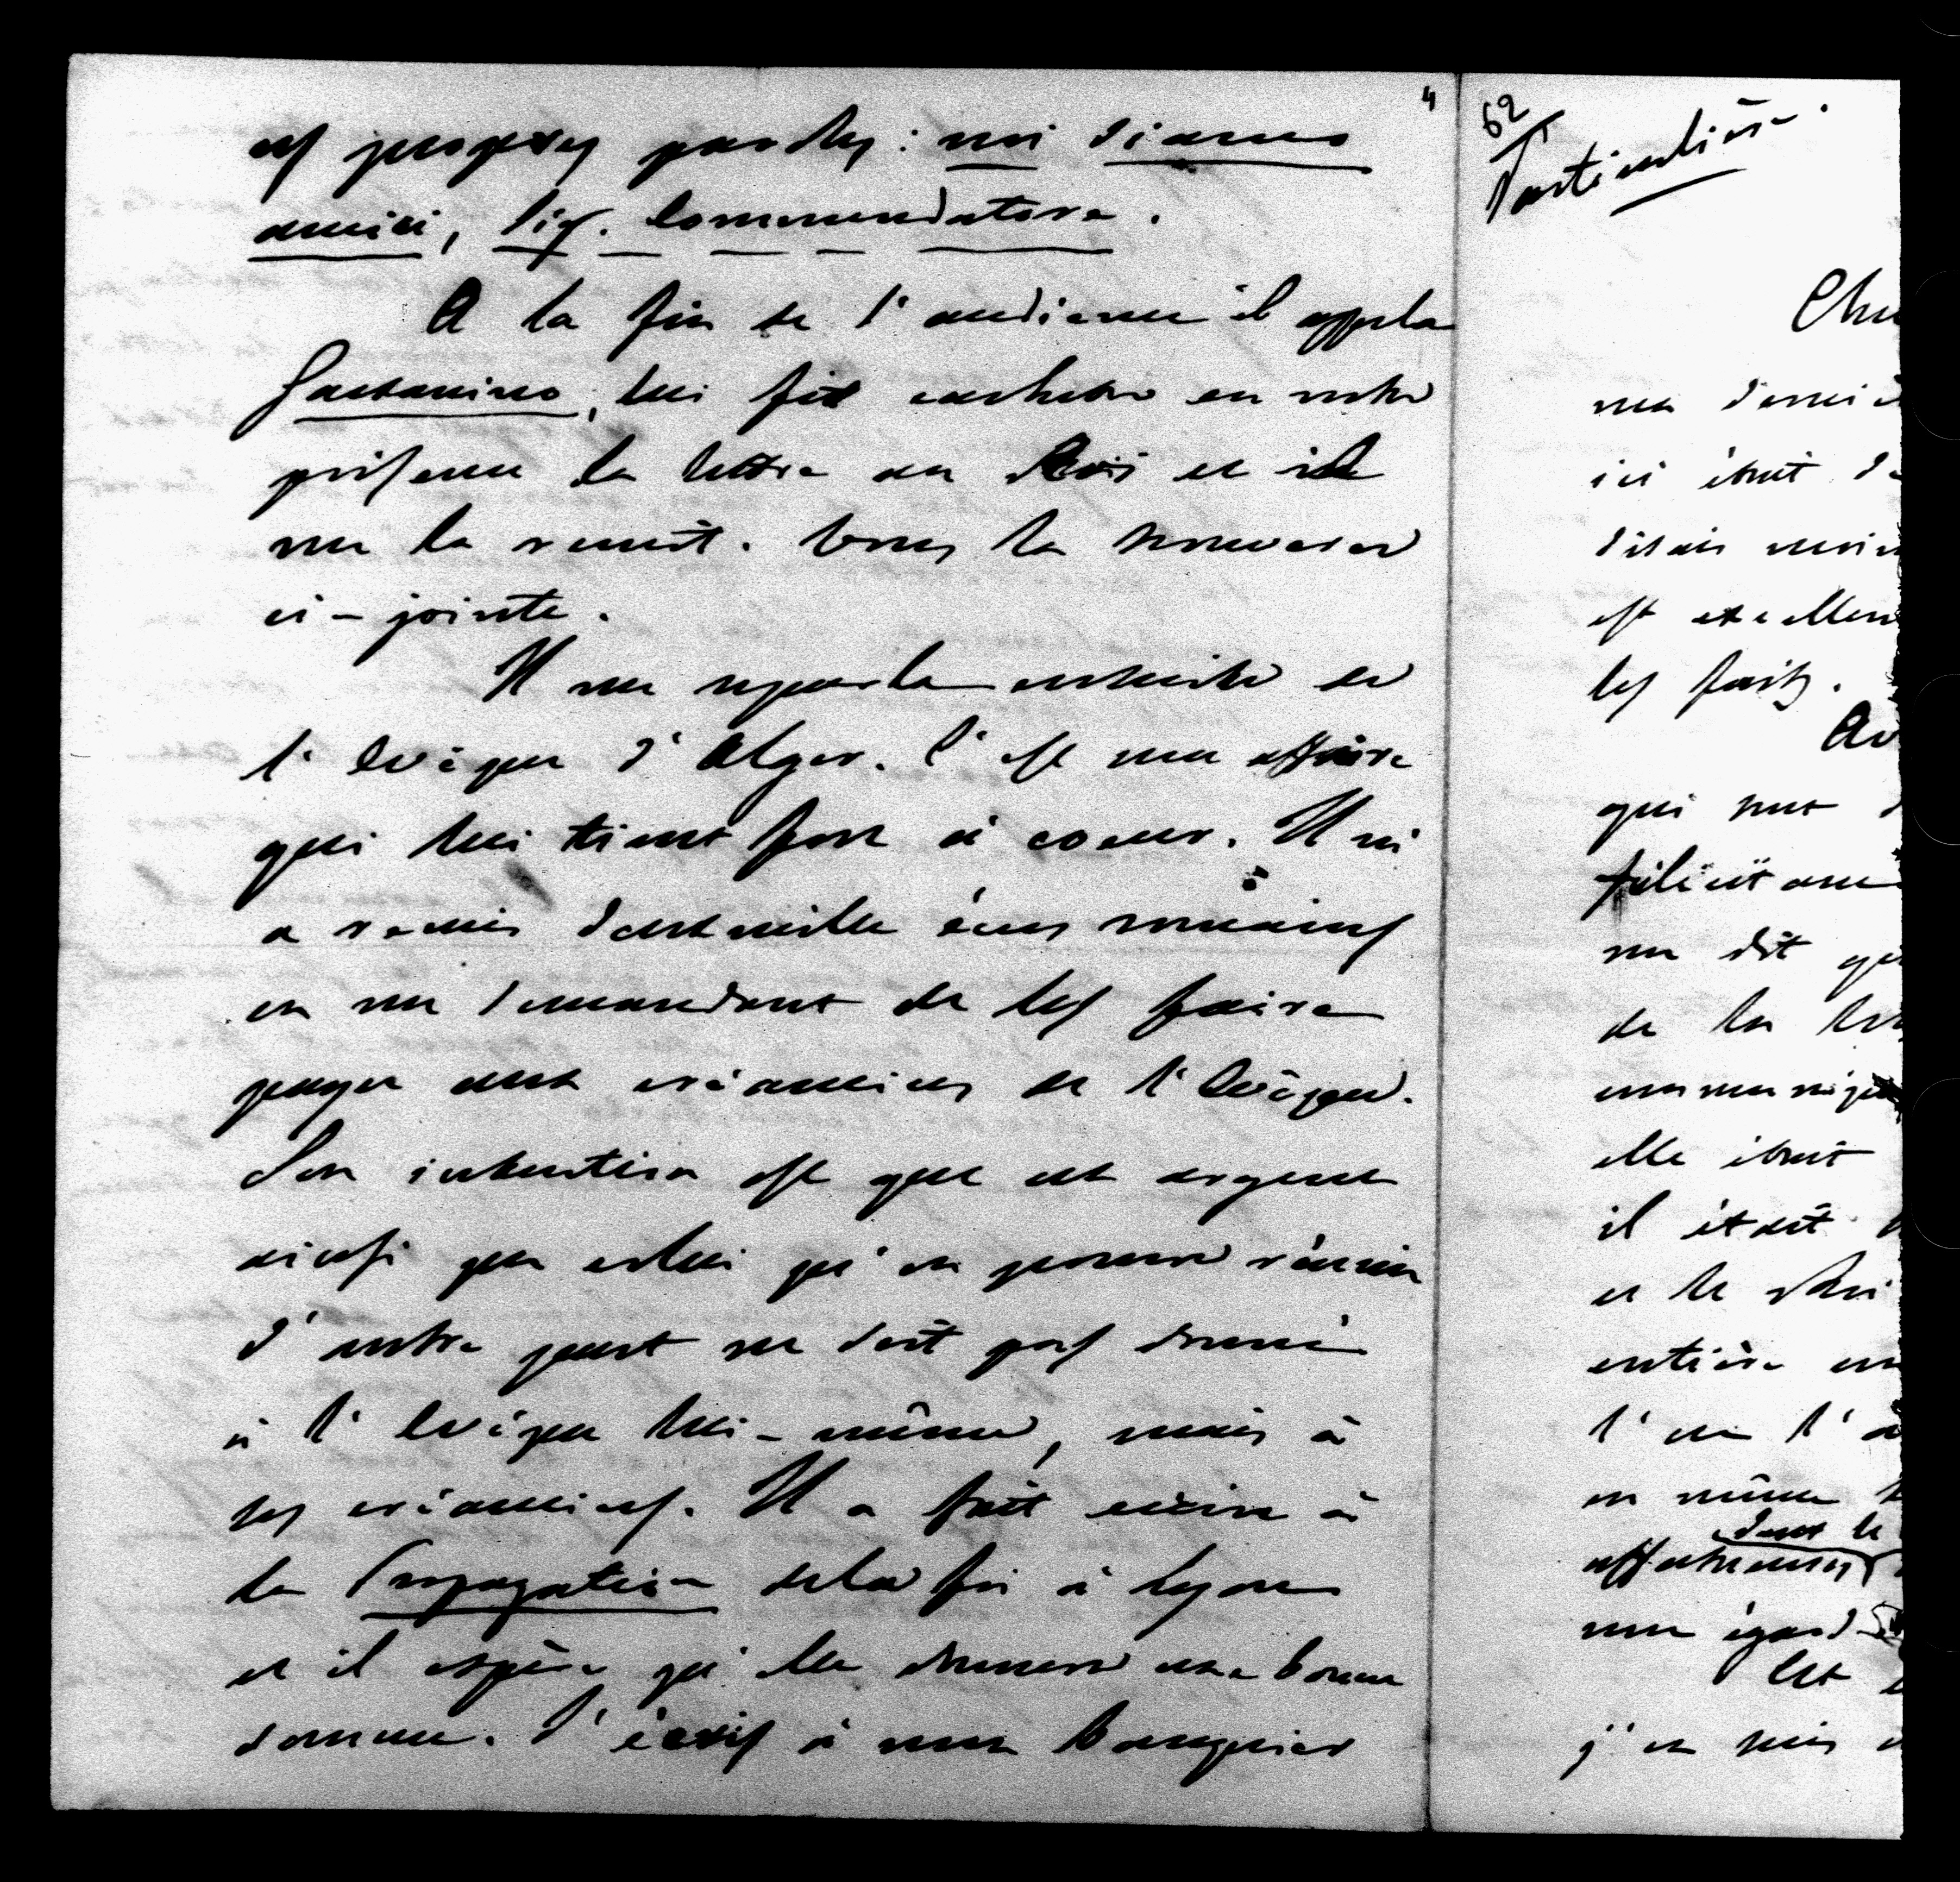 4
ces propres paroles : noi siamo
amici, Sig. Commendatore.
A la fin de l'audience il appela
Gaetanino, lui fit cacheter en notre
présence la lettre au Roi et il
me la remit. Vous la trouverez
ci-jointe.
Il me reparla ensuite de
l'Evêque d'Alger. C'est une affaire
qui lui tient fort à coeur. Il m'
a remis deux mille écus romains
en me demandant de les faire
payer aux créanciers de l'Evêque.
Son intention est que cet argent
ainsi que celui qu'on pourra réunir
d'autre part ne soit pas donné
à l'Evêque lui-même, mais à
ses créanciers. Il a fait écrire à
la Propagation de la foi à Lyon
et il espère qu'elle donnera une bonne
somme. J'écris à mon banquier
62
Particulière.
Cher
ma derniè
ici était de
disais moin
est excellen
les faits.
Av
qui tout
félicitant
me dit qu
de la let
communiqué
elle était
il était
et le Roi
entière
l'on l'a
en même t
dont le
affectueuses
mon égard
Cet
j'en suis